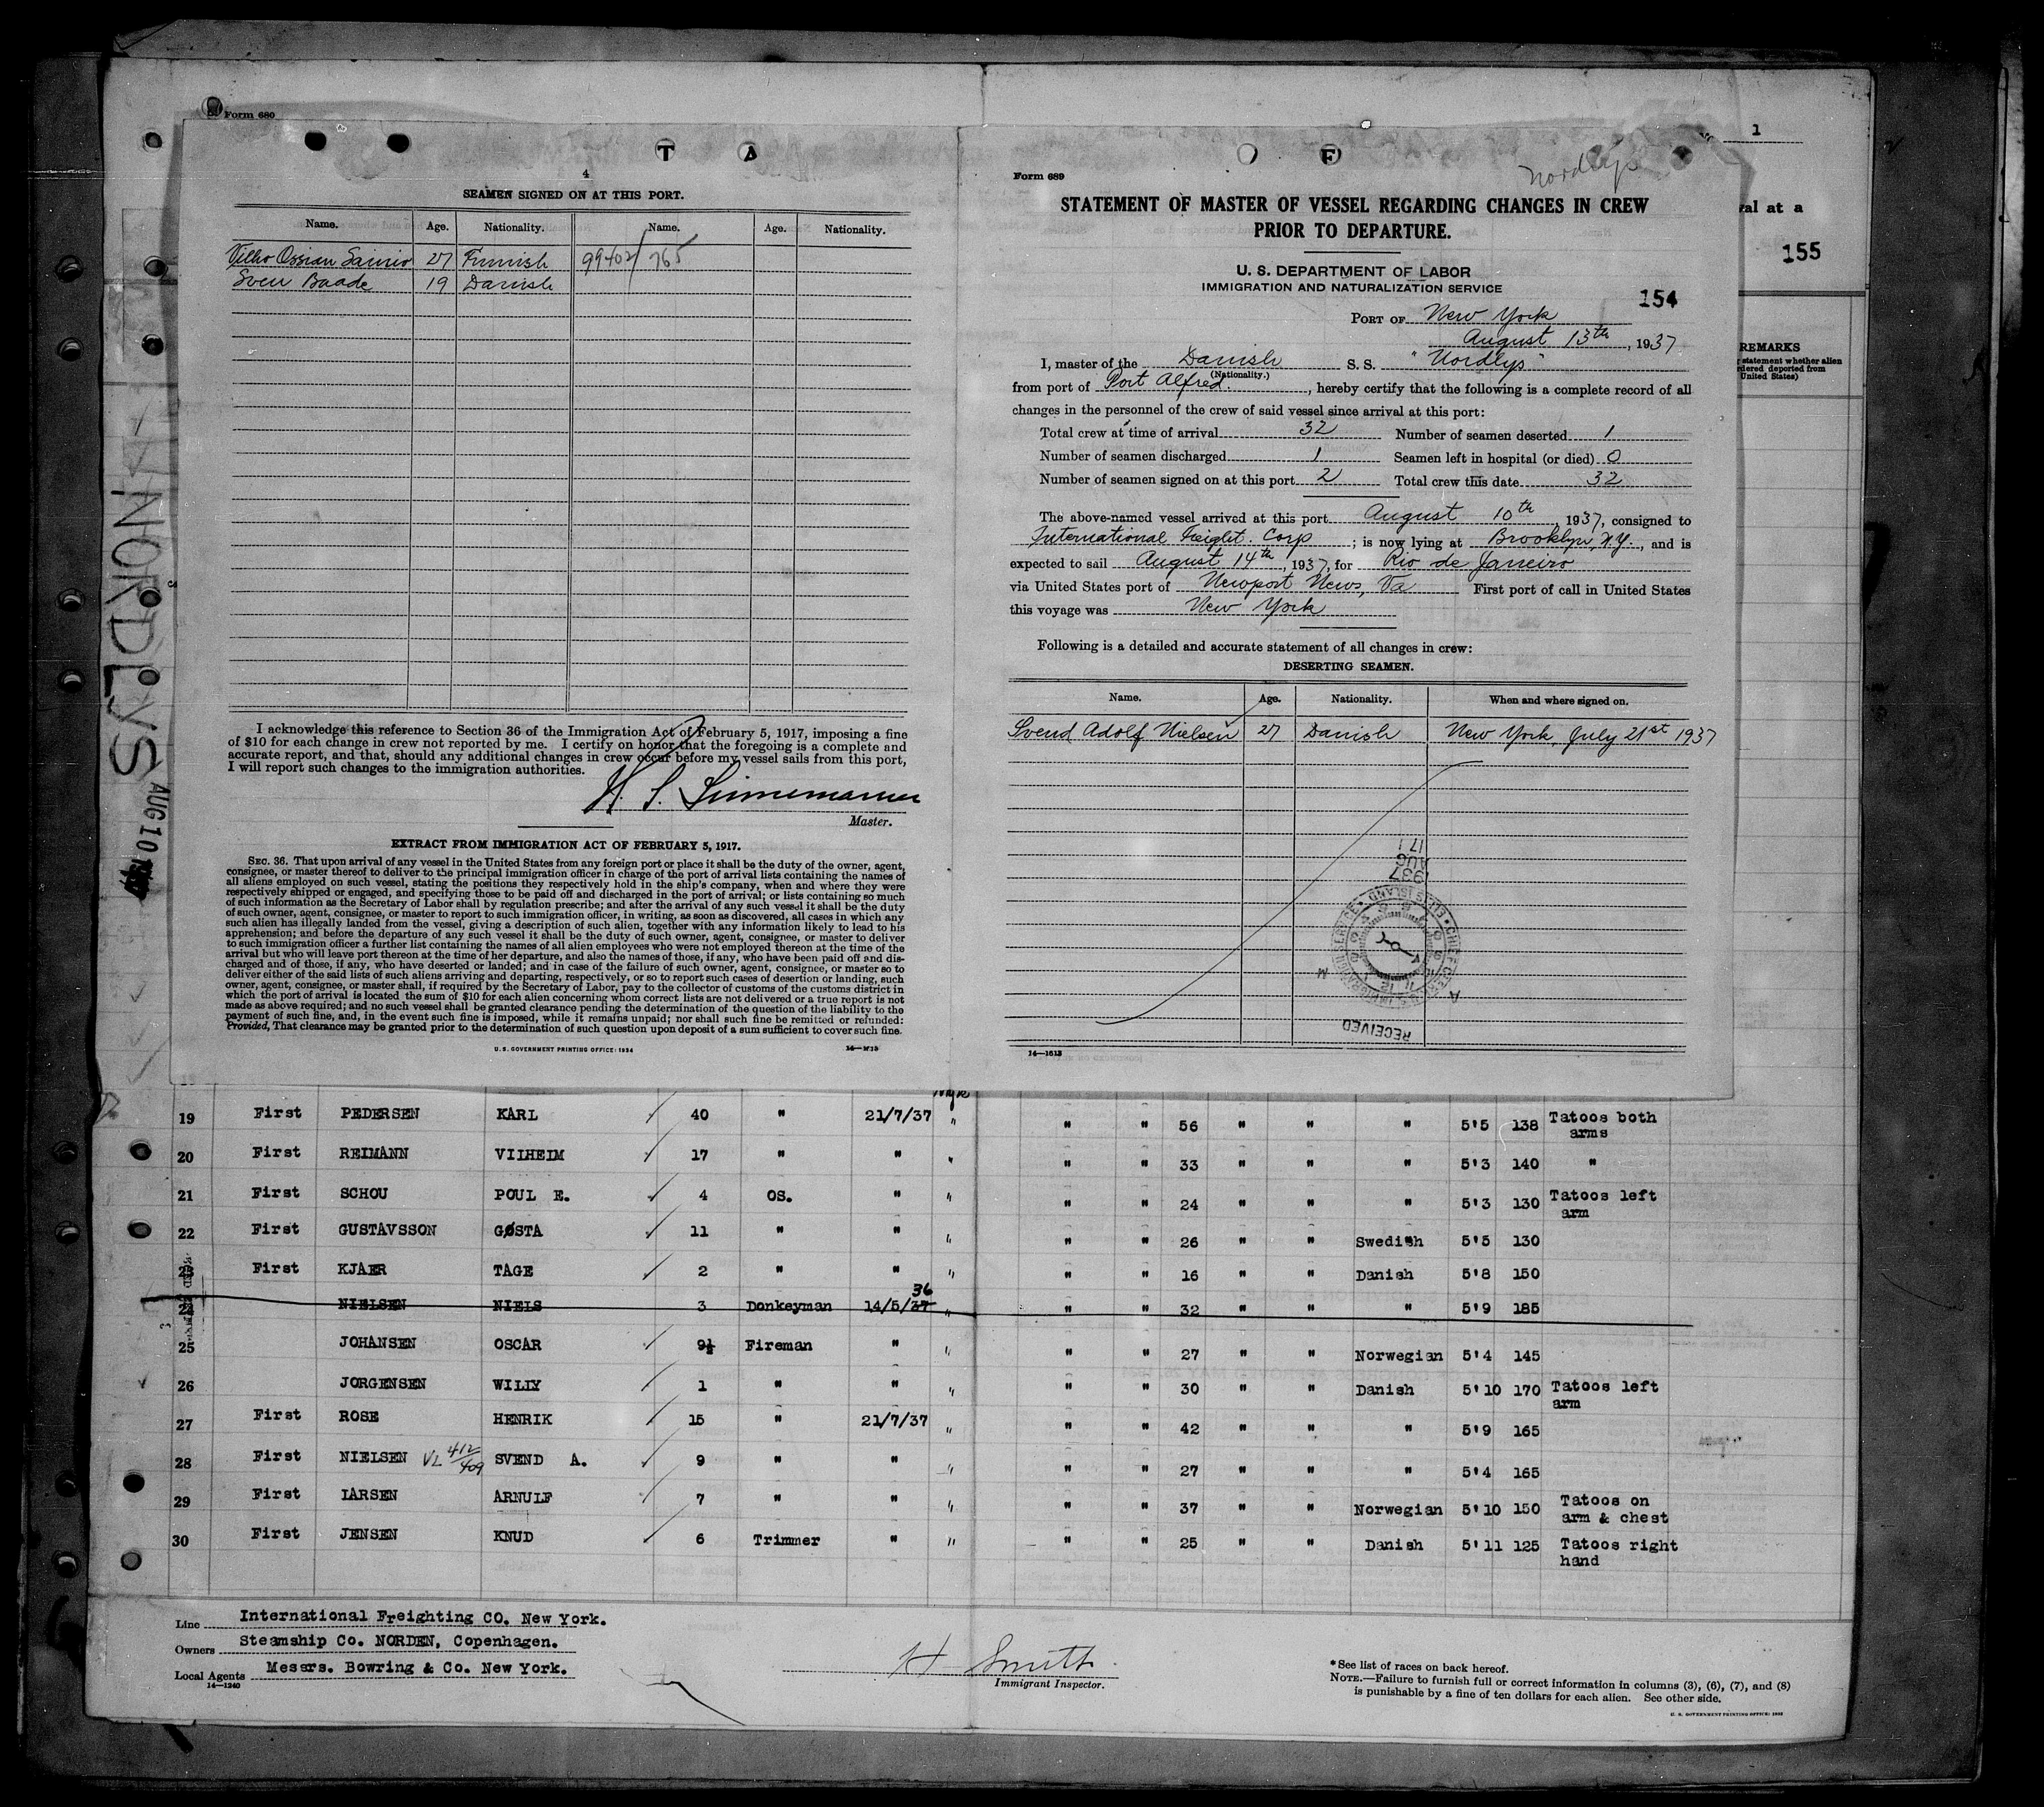 Form 680
T A
4
SEAMEN SIGNED ON AT THIS PORT.
Name. Age. Nationality. Name. Age. Nationality.
Vilho Ossian Sainio 27 Finnish 99402/765
Sven Baade 19 Danish
I acknowledge this reference to Section 36 of the Immigration Act of February 5, 1917, imposing a fine
of $10 for each change in crew not reported by me. I certify on honor that the foregoing is a complete and
accurate report, and that, should any additional changes in crew occur before my vessel sails from this port,
I will report such changes to the immigration authorities.
Master.
EXTRACT FROM IMMIGRATION ACT OF FEBRUARY 5, 1917.
SEC. 36. That upon arrival of any vessel in the United States from any foreign port or place it shall be the duty of the owner, agent,
consignee, or master thereof to deliver to the principal immigration officer in charge of the port of arrival lists containing the names of
all aliens employed on such vessel, stating the positions they respectively hold in the ship's company, when and where they were
respectively shipped or engaged, and specifying those to be paid off and discharged in the port of arrival; or lists containing so much
of such information as the Secretary of Labor shall by regulation prescribe; and after the arrival of any such vessel it shall be the duty
of such owner, agent, consignee, or master to report to such immigration officer, in writing, as soon as discovered, all cases in which any
such alien has illegally landed from the vessel, giving a description of such alien, together with any information likely to lead to his
apprehension; and before the departure of any such vessel it shall be the duty of such owner, agent, consignee, or master to deliver
to such immigration officer a further list containing the names of all alien employees who were not employed thereon at the time of the
arrival but who will leave port thereon at the time of her departure, and also the names of those, if any, who have been paid off and dis-
charged and of those, if any, who have deserted or landed; and in case of the failure of such owner, agent, consignee, or master so to
deliver either of the said lists of such aliens arriving and departing, respectively, or so to report such cases of desertion or landing, such
owner, agent, consignee, or master shall, if required by the Secretary of Labor, pay to the collector of customs of the customs district in
which the port of arrival is located the sum of $10 for each alien concerning whom correct lists are not delivered or a true report is not
made as above required; and no such vessel shall be granted clearance pending the determination of the question of the liability to the
payment of such fine, and, in the event such fine is imposed, while it remains unpaid; nor shall such fine be remitted or refunded:
Provided, That clearance may be granted prior to the determination of such question upon deposit of a sum sufficient to cover such fine.
U. S. GOVERNMENT PRINTING OFFICE: 1934
F
Form 689
Nordlys
STATEMENT OF MASTER OF VESSEL REGARDING CHANGES IN CREW
PRIOR TO DEPARTURE.
U. S. DEPARTMENT OF LABOR
IMMIGRATION AND NATURALIZATION SERVICE
154
PORT OF New York
August 13th, 1937
I, master of the Danish S. S. "Nordlys"
(Nationality.)
from port of Port Alfred, hereby certify that the following is a complete record of all
changes in the personnel of the crew of said vessel since arrival at this port:
Total crew at time of arrival 32 Number of seamen deserted 1
Number of seamen discharged 1 Seamen left in hospital (or died) 0
Number of seamen signed on at this port 2 Total crew this date 32
The above-named vessel arrived at this port August 10th, 1937, consigned to
International Freight. Corp; is now lying at Brooklyn, N.Y., and is
expected to sail August 14th, 1937, for Rio de Janeiro
via United States port of Newport News, Va First port of call in United States
this voyage was New York
Following is a detailed and accurate statement of all changes in crew:
DESERTING SEAMEN.
Name. Age. Nationality. When and where signed on.
Svend Adolf Nielsen 27 Danish New York, July 21st 1937
RECEIVED
1937
AUG
17
14—1613
1
val at a
155
REMARKS
statement whether alien
rdered deported from
United States)
NORDLYS
AUG 10 1937
19 First PEDERSEN KARL 40 " 21/7/37 " " " 56 " " " 5'5 138 Tatoos both
arms
20 First REIMANN VILHEIM 17 " " " " " 33 " " " 5'3 140 "
21 First SCHOU POUL E. 4 OS. " " " " 24 " " " 5'3 130 Tatoos left
arm
22 First GUSTAVSSON GØSTA 11 " " " " " 26 " " Swedish 5'5 130
23 First KJAER TAGE 2 " " " " " 16 " " Danish 5'8 150
24 NIELSEN NIELS 3 Donkeyman 14/5/37 36 " " " 32 " " " 5'9 185
25 JOHANSEN OSCAR 9½ Fireman " " " " 27 " " Norwegian 5'4 145
26 JORGENSEN WILLY 1 " " " " " 30 " " Danish 5'10 170 Tatoos left
arm
27 First ROSE HENRIK 15 " 21/7/37 " " " 42 " " " 5'9 165
28 First NIELSEN VL 412/409 SVEND A. 9 " " " " " 27 " " " 5'4 165
29 First LARSEN ARNULF 7 " " " " " 37 " " Norwegian 5'10 150 Tatoos on
arm & chest
30 First JENSEN KNUD 6 Trimmer " " " " 25 " " Danish 5'11 125 Tatoos right
hand
Line International Freighting CO. New York.
Owners Steamship Co. NORDEN, Copenhagen.
Local Agents Messrs. Bowring & Co. New York.
14—1240
H Smith
Immigrant Inspector.
*See list of races on back hereof.
NOTE.—Failure to furnish full or correct information in columns (3), (6), (7), and (8)
is punishable by a fine of ten dollars for each alien. See other side.